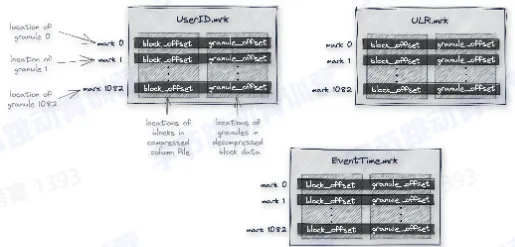 UserID.mrk
location of
granule 0
mark 0
block_offset
granule_offset
location of
granule 1
mark 1
block_offset
granule_offset
location of
granule 1082
mark 1082
block_offset
granule_offset
locations of
blocks in
compressed
column file
locations of
granules in
decompressed
block data
ULR.mrk
mark 0
block_offset
granule_offset
mark 1
block_offset
granule_offset
mark 1082
block_offset
granule_offset
EventTime.mrk
mark 0
block_offset
granule_offset
mark 1
block_offset
granule_offset
mark 1082
block_offset
granule_offset
1393